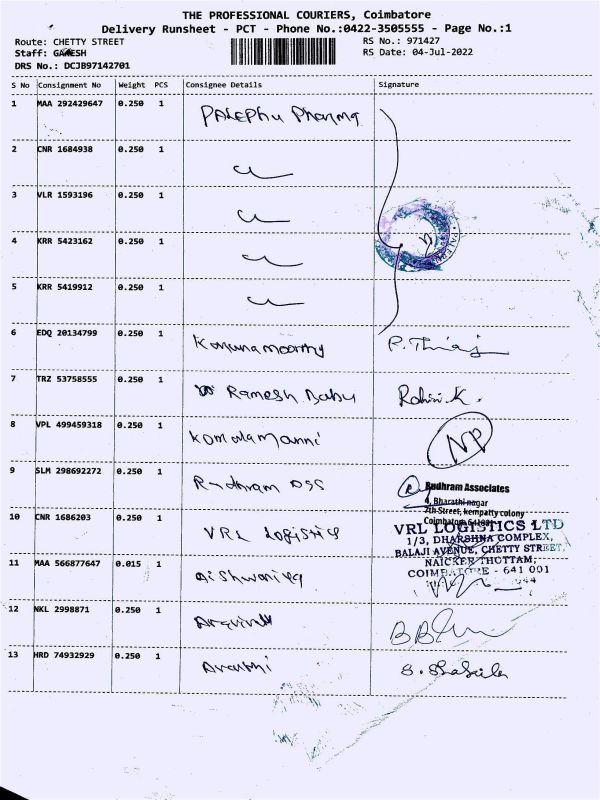 THE PROFESSIONAL COURIERS, Coimbatore
Delivery Runsheet - PCT - Phone No.:0422-3505555 - Page No.:1
Route: CHETTY STREET RS No.: 971427
Staff: GANESH RS Date: 04-Jul-2022
DRS No.: DCJB97142701
S No Consignment No Weight PCS Consignee Details Signature
1 MAA 292429647 0.250 1 Palephu Pharma
2 CNR 1684938 0.250 1
3 VLR 1593196 0.250 1
4 KRR 5423162 0.250 1
5 KRR 5419912 0.250 1
6 EDQ 20134799 0.250 1 Karunamoorthy P. Thiraj
7 TRZ 53758555 0.250 1 Ramesh Babu Rohini.K.
8 VPL 499459318 0.250 1 Komalamanni NP
9 SLM 298692272 0.250 1 Rudhram Oss
Rudhram Associates
4, Bharathi nagar
7th Street, kempatty colony
Coimbatore
10 CNR 1686203 0.250 1 VRL Logistics
VRL LOGISTICS LTD
1/3, DHARSHNA COMPLEX,
BALAJI AVENUE, CHETTY STREET,
NAICKER THOTTAM,
COIMBATORE - 641 001
11 MAA 566877647 0.015 1 Aishwariya
12 NKL 2998871 0.250 1 Aravinth
13 HRD 74932929 0.250 1 Arathi